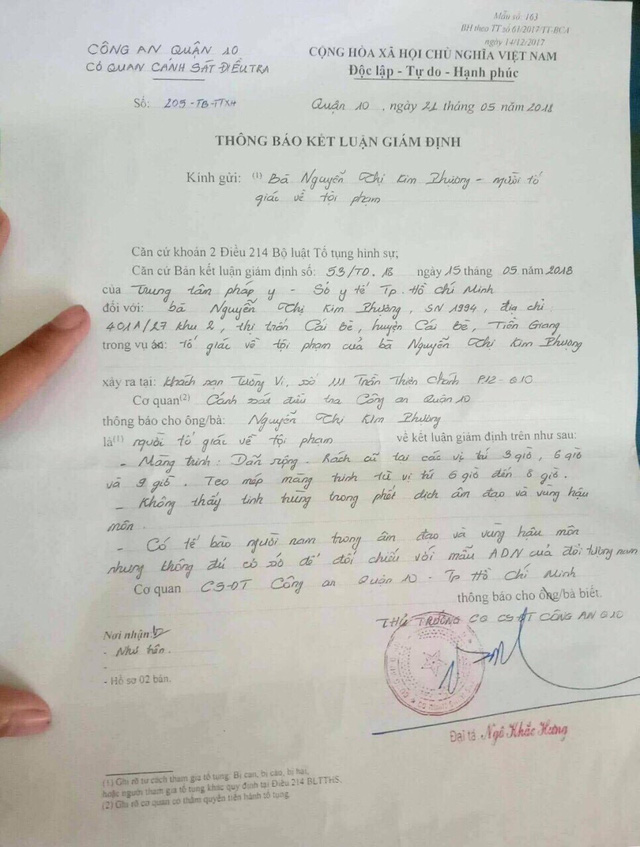 Mẫu số: 163
BH theo TT số 61/2017/TT-BCA
ngày 14/12/2017
CÔNG AN QUẬN 10
CỘNG HÒA XÃ HỘI CHỦ NGHĨA VIỆT NAM
CƠ QUAN CẢNH SÁT ĐIỀU TRA
Độc lập - Tự do - Hạnh phúc
Số: 205-TB-TTXH
Quận 10, ngày 21 tháng 05 năm 2018
THÔNG BÁO KẾT LUẬN GIÁM ĐỊNH
Kính gửi: (1) Bà Nguyễn Thị Kim Phường - người tố
giác về tội phạm
Căn cứ khoản 2 Điều 214 Bộ luật Tố tụng hình sự;
Căn cứ Bản kết luận giám định số: 53/TD.18 ngày 15 tháng 05 năm 2018
của Trung tâm pháp y - Sở y tế Tp. Hồ Chí Minh
đối với: bà Nguyễn Thị Kim Phường, SN 1994, địa chỉ
401A/27 khu 2, thị trấn Cái Bè, huyện Cái Bè, Tiền Giang
trong vụ tố giác về tội phạm của bà Nguyễn Thị Kim Phường
xảy ra tại: Khách sạn Tường Vi, số 111 Trần Thiện Chánh P12-Q10
Cơ quan(2) Cảnh sát điều tra Công an Quận 10
thông báo cho ông/bà: Nguyễn Thị Kim Phường
là(1) người tố giác về tội phạm về kết luận giám định trên như sau:
- Màng trinh: Dãn rộng - Rách cũ tại các vị trí 3 giờ, 6 giờ
và 9 giờ. Teo mép màng trinh từ vị trí 6 giờ đến 8 giờ.
- Không thấy tinh trùng trong phết dịch âm đạo và vùng hậu
môn.
- Có tế bào người nam trong âm đạo và vùng hậu môn
nhưng không đủ cơ sở để đối chiếu với mẫu ADN của đối tượng nam
Cơ quan CS-ĐT Công an Quận 10 - Tp Hồ Chí Minh
thông báo cho ông/bà biết.
THỦ TRƯỞNG CQ CSĐT CÔNG AN Q10
Nơi nhận:
- Như trên.
-
- Hồ sơ 02 bản.
Đại tá Ngô Khắc Hưng
(1) Ghi rõ tư cách tham gia tố tụng: Bị can, bị cáo, bị hại,
hoặc người tham gia tố tụng khác quy định tại Điều 214 BLTTHS.
(2) Ghi rõ cơ quan có thẩm quyền tiến hành tố tụng.